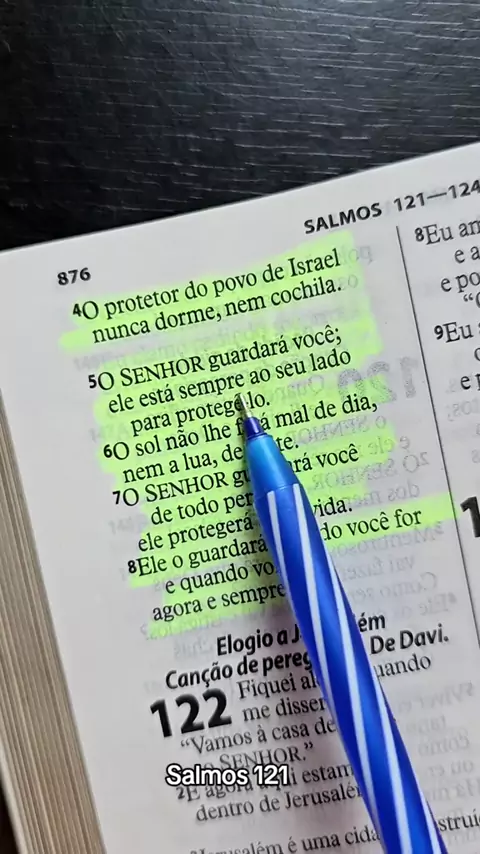 SALMOS 121—124
876
4O protetor do povo de Israel
nunca dorme, nem cochila.
5O SENHOR guardará você;
ele está sempre ao seu lado
para protegê-lo.
6O sol não lhe fará mal de dia,
nem a lua, de
7O SENHOR você
de todo
ele protegerá vida.
8Ele o guardará você for
e quando
agora e sempre
Elogio a
Canção de De Davi.
122 Fiquei quando
me
“Vamos à casa de
SENHOR.”
2E agora estam
dentro de Jerusalém
Jerusalém é uma cida
8Eu am
e a
e po
9Eu
e p
Salmos 121